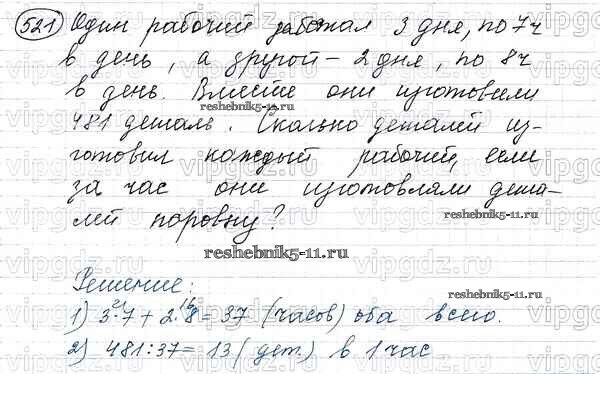 521 Один рабочий работал 3 дня, по 7ч
в день, а другой - 2 дня, по 8ч
в день. Вместе они изготовили
reshebnik5-11.ru
481 деталь. Сколько деталей из-
готовил каждый рабочий, если
за час они изготовляли дета-
лей поровну?
reshebnik5-11.ru
reshebnik5-11.ru
Решение:
1) 3·7 + 2·8 = 37 (часов) оба всего.
2) 481:37 = 13 (дет.) в 1 час
vipgdz.com